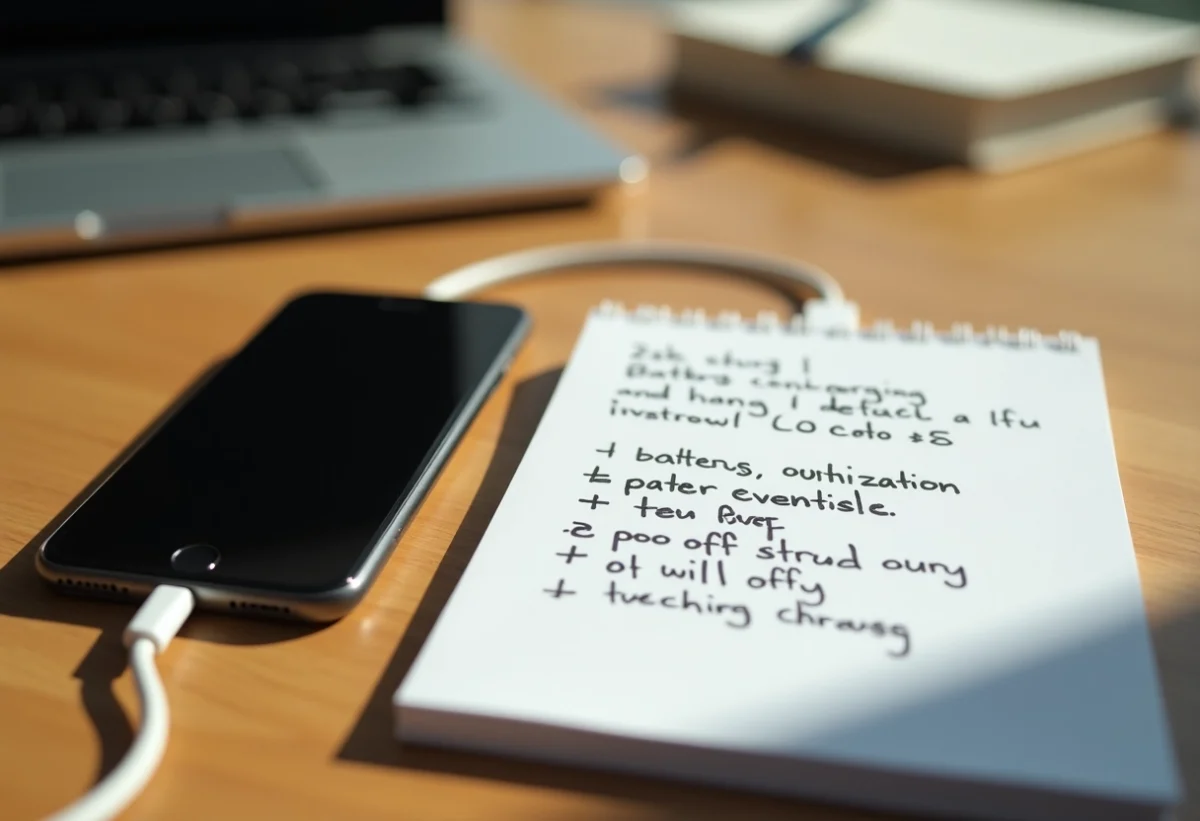 Battery contrarging
and hang I defuct a Ifu
invstrowl CO coto
+ battens, ourthization
± pater eventisle.
+ teu
poo off strud oury
+ ot will offy
+ tveching chrausg